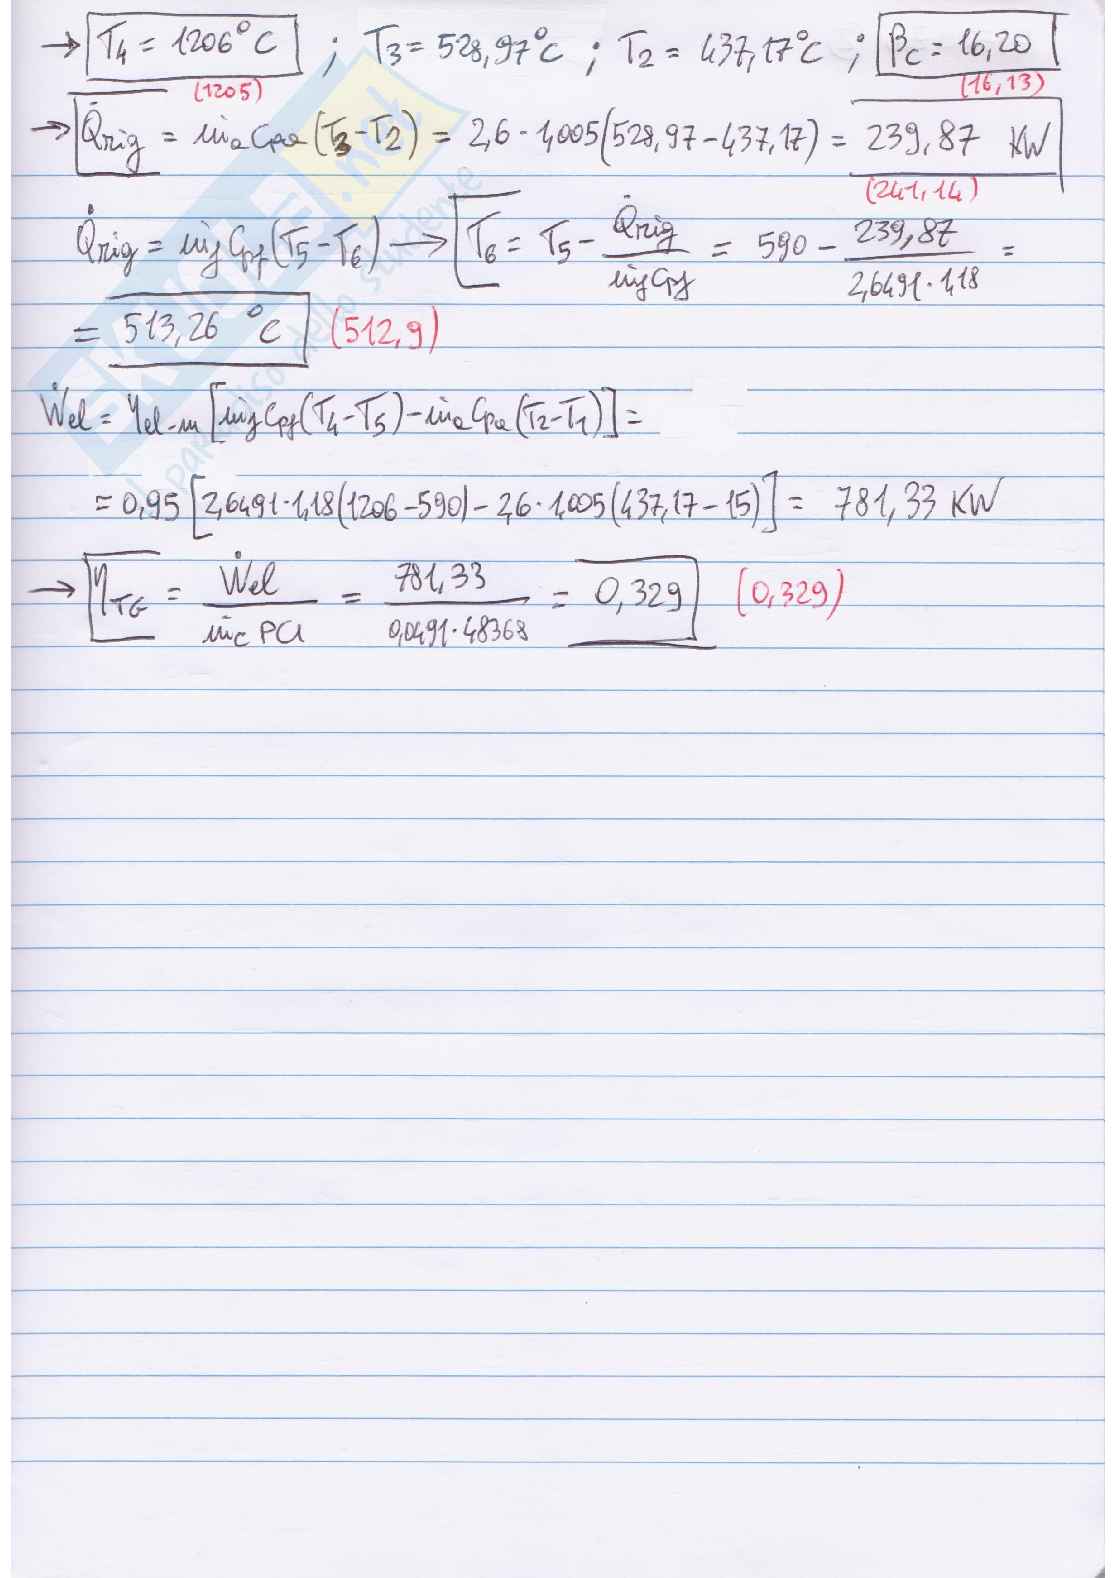 → T4 = 1206°C ; T3 = 528,97°C ; T2 = 437,17°C ; βc = 16,20
(1205) (16,13)
→ Q̇rig = ṁa Cpa (T3-T2) = 2,6 · 1,005(528,97-437,17) = 239,87 KW
(241,14)
Q̇rig = ṁf Cpf (T5-T6) → T6 = T5 - Q̇rig / ṁf Cpf = 590 - 239,87 / 2,6491·1,18 =
= 513,26 °C (512,9)
Ẇel = ηel-m [ṁf Cpf (T4-T5) - ṁa Cpa (T2-T1)] =
= 0,95 [2,6491·1,18(1206-590) - 2,6·1,005(437,17-15)] = 781,33 KW
→ ηTG = Ẇel / ṁc PCI = 781,33 / 0,0491·48368 = 0,329 (0,329)
SKUOLA.net
il paradiso dello studente